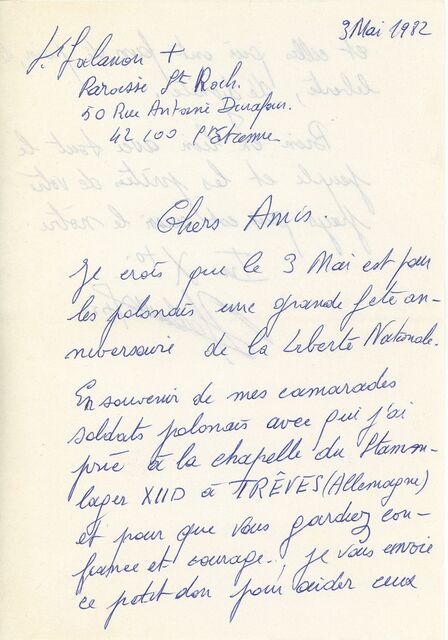 3 Mai 1982
Paroisse St Roch.
50 Rue Antoine Durafour.
42 100 St Etienne
Chers Amis.
Je crois que le 3 Mai est pour
les polonais une grande fête an-
niversaire de la Liberté Nationale.
En souvenir de mes camarades
soldats polonais avec qui j'ai
prié à la chapelle du Stamm-
lager XIID à TRÊVES (Allemagne)
et pour que vous gardiez con-
fiance et courage, je vous envoie
ce petit don pour aider ceux